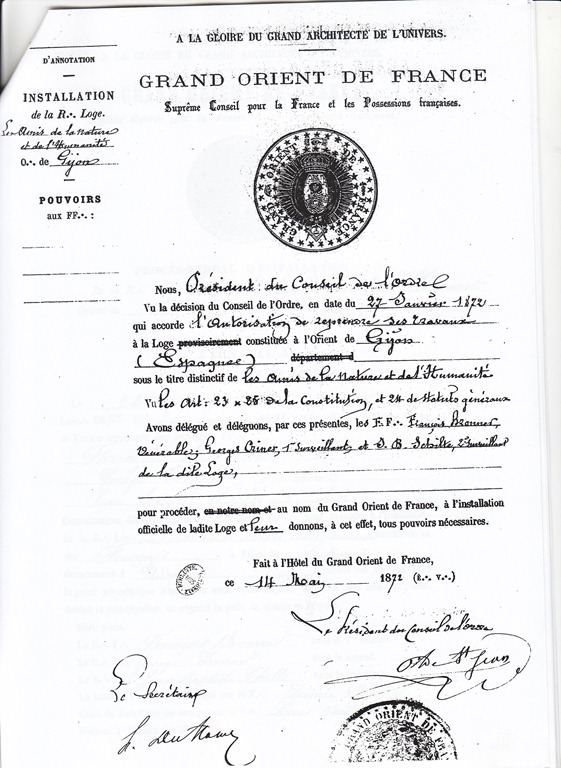 A LA GLOIRE DU GRAND ARCHITECTE DE L'UNIVERS.
GRAND ORIENT DE FRANCE
Suprême Conseil pour la France et les Possessions françaises.
D'ANNOTATION
INSTALLATION
de la R∴ Loge.
Les Amis de la Nature
et de l'Humanité
O∴ de Gijon
POUVOIRS
aux FF∴ :
GRAND ORIENT DE FRANCE
Nous, Président du Conseil de l'ordre
Vu la décision du Conseil de l'Ordre, en date du 27 Janvier 1872
qui accorde l'Autorisation de reprendre ses travaux
à la Loge provisoirement constituée à l'Orient de Gijon
(Espagne) département d
sous le titre distinctif de les Amis de la Nature et de l'Humanité
Vu les Art: 23 & 28 de la Constitution, et 24 de Statuts généraux
Avons délégué et déléguons, par ces présentes, les FF∴ François
Vénérable; Georges 1er Surveillant; et 2e Surveillant
de la dite Loge,
pour procéder, en notre nom et au nom du Grand Orient de France, à l'installation
officielle de ladite Loge et leur donnons, à cet effet, tous pouvoirs nécessaires.
Fait à l'Hôtel du Grand Orient de France,
ce 14 Mai 1872 (E∴ V∴)
Le Président du Conseil de l'ordre
de St Jean
Le Secrétaire
GRAND ORIENT DE FRANCE